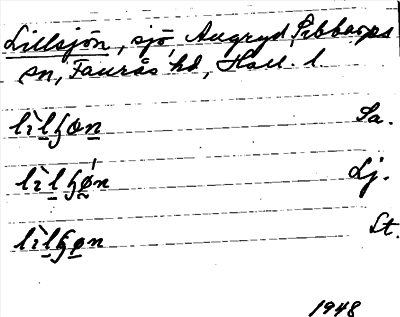 Lillsjön, sjö, Augryd, Vibbarps
sn, Faurås hd, Hall. l.
lìlɧon Sa.
lìlɧøn Lj.
lìlɧon St.
1948